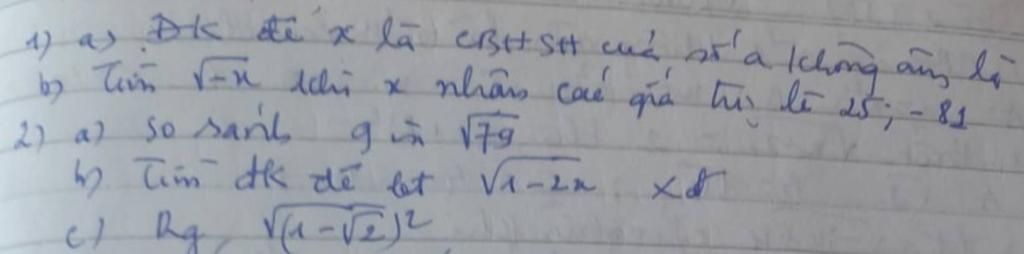 1) a) ĐK để x là CBHSH của số a không âm là
b) Tìm √-x khi x nhận các giá trị là 25; -81
2) a) so sánh 9 và √79
b) Tìm đk để bt √1-2x xđ
c) Rg √(1-√2)²